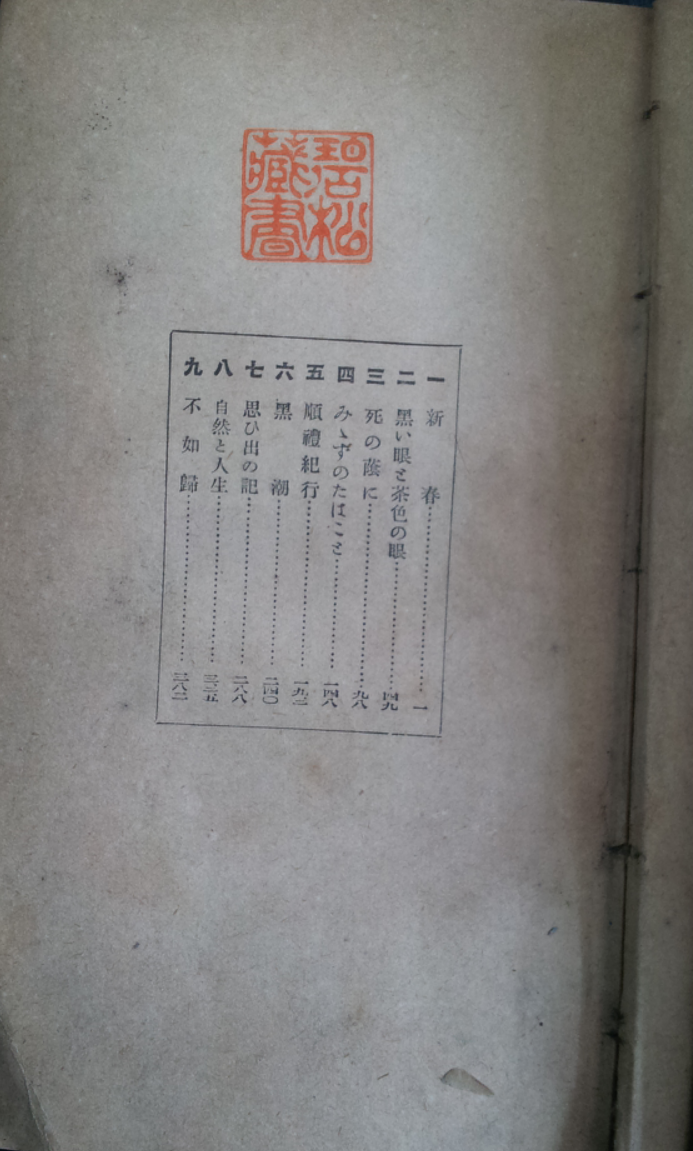 碧松
藏書
一 新春……一
二 黑い眼と茶色の眼……四九
三 死の蔭に……九八
四 みゝずのたはこと……一四八
五 順禮紀行……一九二
六 黑潮……二四〇
七 思ひ出の記……二八八
八 自然と人生……三三五
九 不如歸……三八二